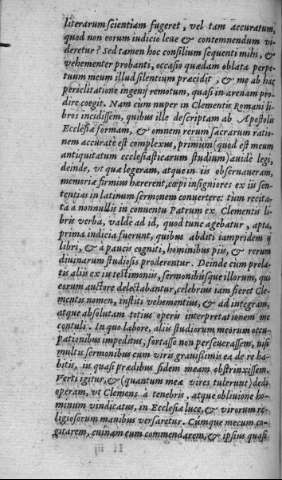 literarum scientiam fugeret, vel tam accuratum,
quod non eorum iudicio leue & contemnendum vi
deretur? Sed tamen hoc consilium sequenti mihi, &
vehementer probanti, occasio quædam oblata perpe
tuum meum illud silentium præcidit, & me ab hac
periclitatione ingenij remotum, quasi in arenam pro
dire coegit. Nam cum nuper in Clementis Romani li
bros incidissem, quibus ille descriptam ab Apostolis
Ecclesiæ formam, & omnem rerum sacrarum ratio
nem accurate est complexus, primum (quod est meum
antiquitatum ecclesiasticarum studium) auide legi,
deinde, vt quæ legeram, atque in iis obseruaueram,
memoriæ firmius hærerent, cœpi insigniores ex iis sen
tentias in latinum sermonem conuertere: tum recita
ta à nonnullis in conuentu Patrum ex Clementis li
bris verba, valde ad id, quod tunc agebatur, apta,
prima indicia fuerunt, quibus abditi iampridem ij
libri, & à paucis cogniti, hominibus piis, & rerum
diuinarum studiosis proderentur. Deinde cum prola
tis aliis ex iis testimoniis, sermonibusque illorum, qui
eorum auctore delectabantur, celebrius iam fieret Cle
mentis nomen, institi vehementius, & ad integram,
atque absolutam totius operis interpretationem me
contuli. In quo labore, aliis studiorum meorum occu-
pationibus impeditus, fortasse non perseuerassem, nisi
multis sermonibus cum viris grauissimis ea de re ha
bitis, in quasi prædibus fidem meam obstrinxissem.
Verti igitur, & (quantum meæ vires tulerunt) dedi
operam, vt Clemens à tenebris, atque obliuione ho-
minum vindicatus, in Ecclesiæ luce, & virorum re-
ligiosorum manibus versaretur. Cumque mecum co-
gitarem, cuinam eum commendarem, & ipsius quasi